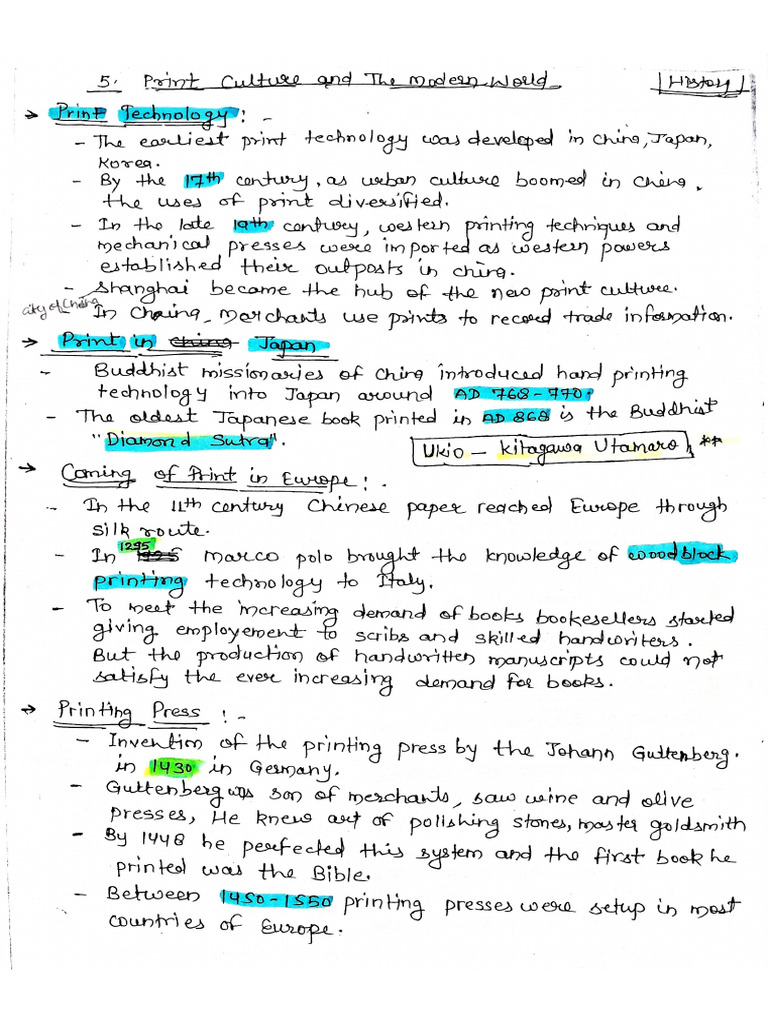 5. Print Culture and The Modern World
History
→ Print Technology : -
- The earliest print technology was developed in China, Japan,
Korea.
- By the 17th century, as urban culture boomed in China,
the uses of print diversified.
- In the late 19th century, western printing techniques and
mechanical presses were imported as western powers
established their outposts in china.
- Shanghai became the hub of the new print culture.
city of China
In Chaina, merchants use prints to record trade information.
→ Print in china Japan
- Buddhist missionaries of China introduced hand printing
technology into Japan around AD 768-770.
- The oldest Japanese book printed in AD 868 is the Buddhist
"Diamond Sutra".
Ukio - Kitagawa Utamaro **
→ Coming of Print in Europe : -
- In the 11th century Chinese paper reached Europe through
silk route.
1295
- In marco polo brought the knowledge of woodblock
printing technology to Italy.
- To meet the increasing demand of books bookesellers started
giving employement to scribs and skilled handwriters.
But the production of handwritten manuscripts could not
satisfy the ever increasing demand for books.
→ Printing Press : -
- Invention of the printing press by the Johann Guttenberg.
in 1430 in Germany.
- Guttenberg was son of merchants, saw wine and olive
presses, He knew art of polishing stones, master goldsmith
- By 1448 he perfected this system and the first book he
printed was the Bible.
- Between 1450-1550 printing presses were setup in most
countries of Europe.